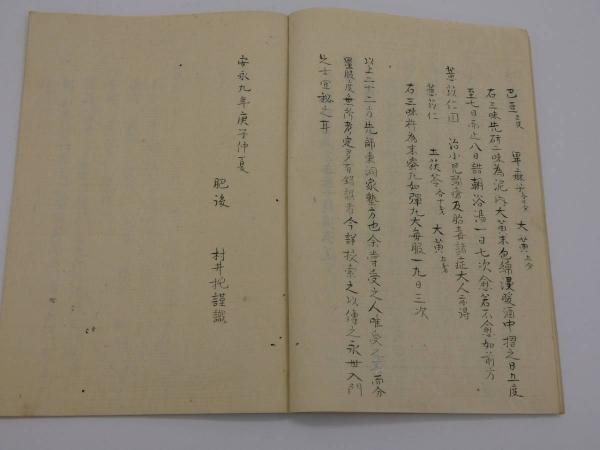 巴豆 蓖麻子 大黄
右三味先研二味為泥内大黄末包綿浸暖酒中摺之日五度
至七日而之八日詰朝浴湯一日七次愈若不愈如前方
薏苡仁圓 治小児頭瘡及胎毒諸症大人亦得
薏苡仁 土茯苓 大黄
右三味杵為末煉丸如弾丸大毎服一丸日三次
以上二十二方先師東洞家塾方也余嘗受之人唯受 而分
量服度無所考定多有錯誤者今詳校索之以傳之永世入門
之士宜秘之耳
安永九年庚子仲夏
肥後 村井杶謹識